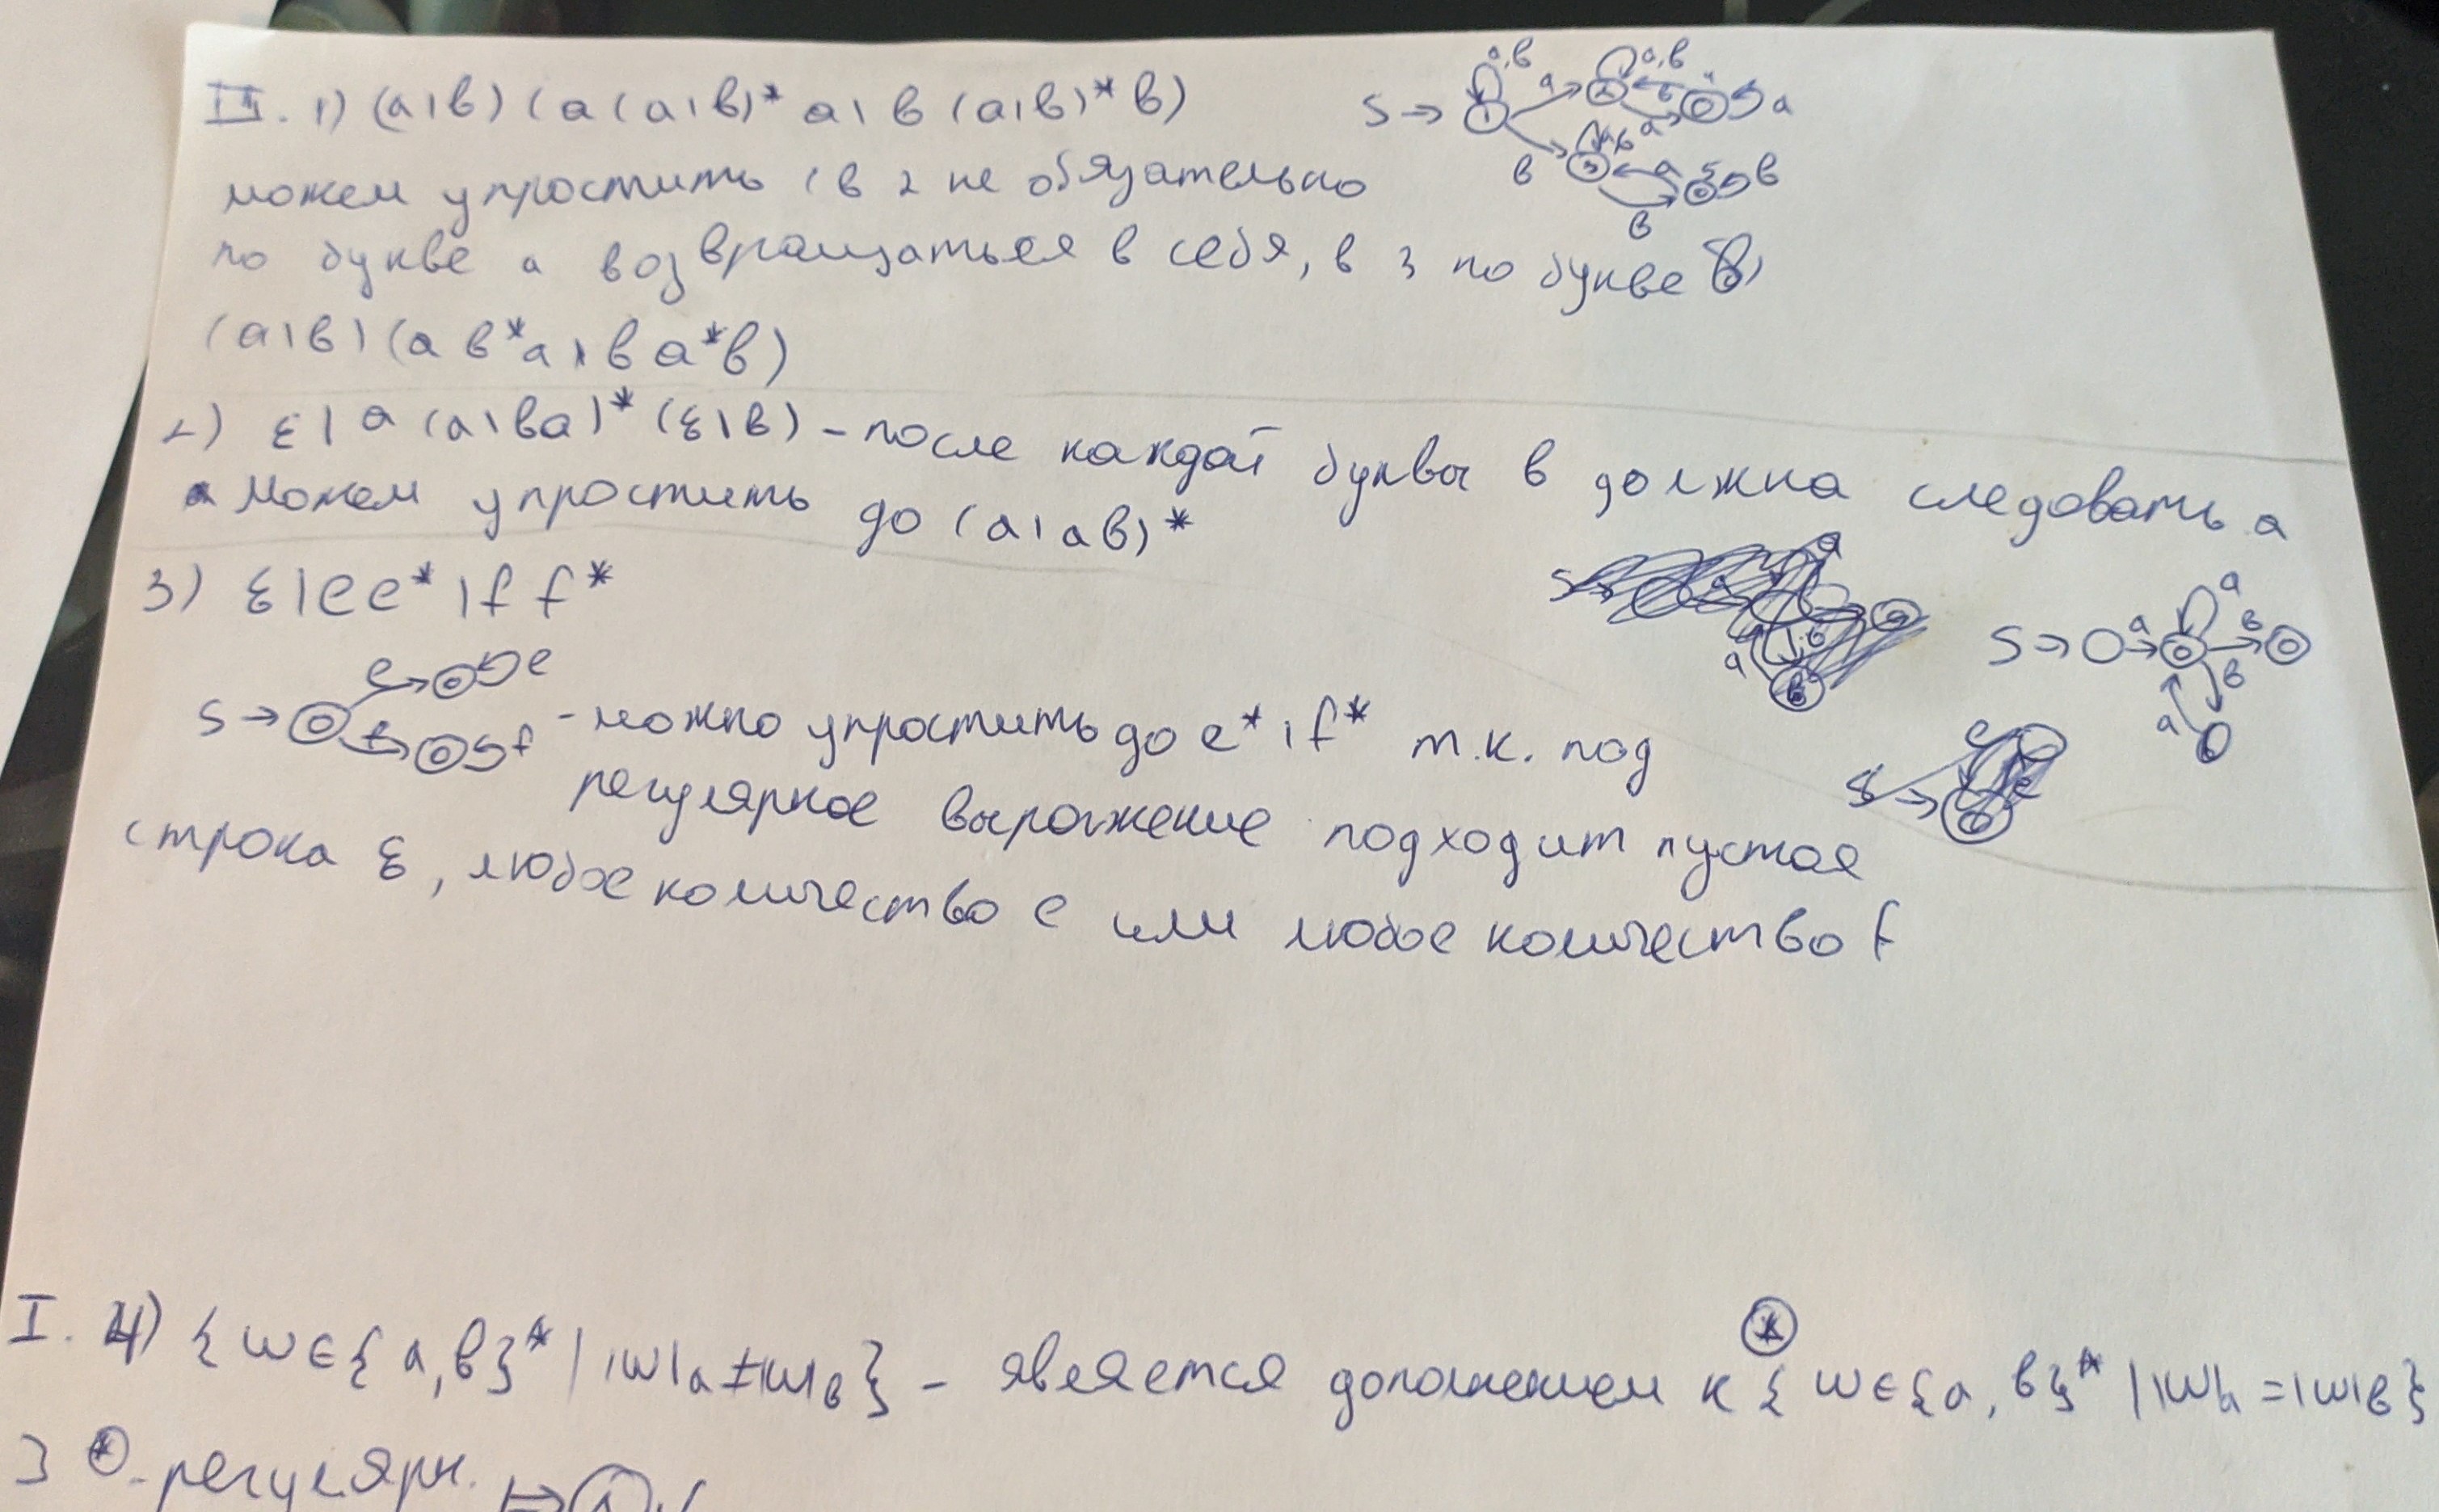 III. 1) (a|b)(a(a|b)*a|b(a|b)*b)
S → 1 a,b a 2 a,b b a a
b 3 a,b a b b
можем упростить (в 2 не обязательно
по букве a возвращаться в себя, в 3 по букве b)
(a|b)(ab*a|ba*b)
2) ε|a(a|ba)*(ε|b) - после каждой буквы b должна следовать a
можем упростить до (a|ab)*
S → a a b b a
3) ε|ee*|ff*
S → e e f f
- можно упростить до e*|f* т.к. под
регулярное выражение подходит пустая
строка ε, любое количество e или любое количество f
I. 4) {w∈{a,b}* | |w|a≠|w|b} - является дополнением к {w∈{a,b}* | |w|a=|w|b}
* - регулярн.